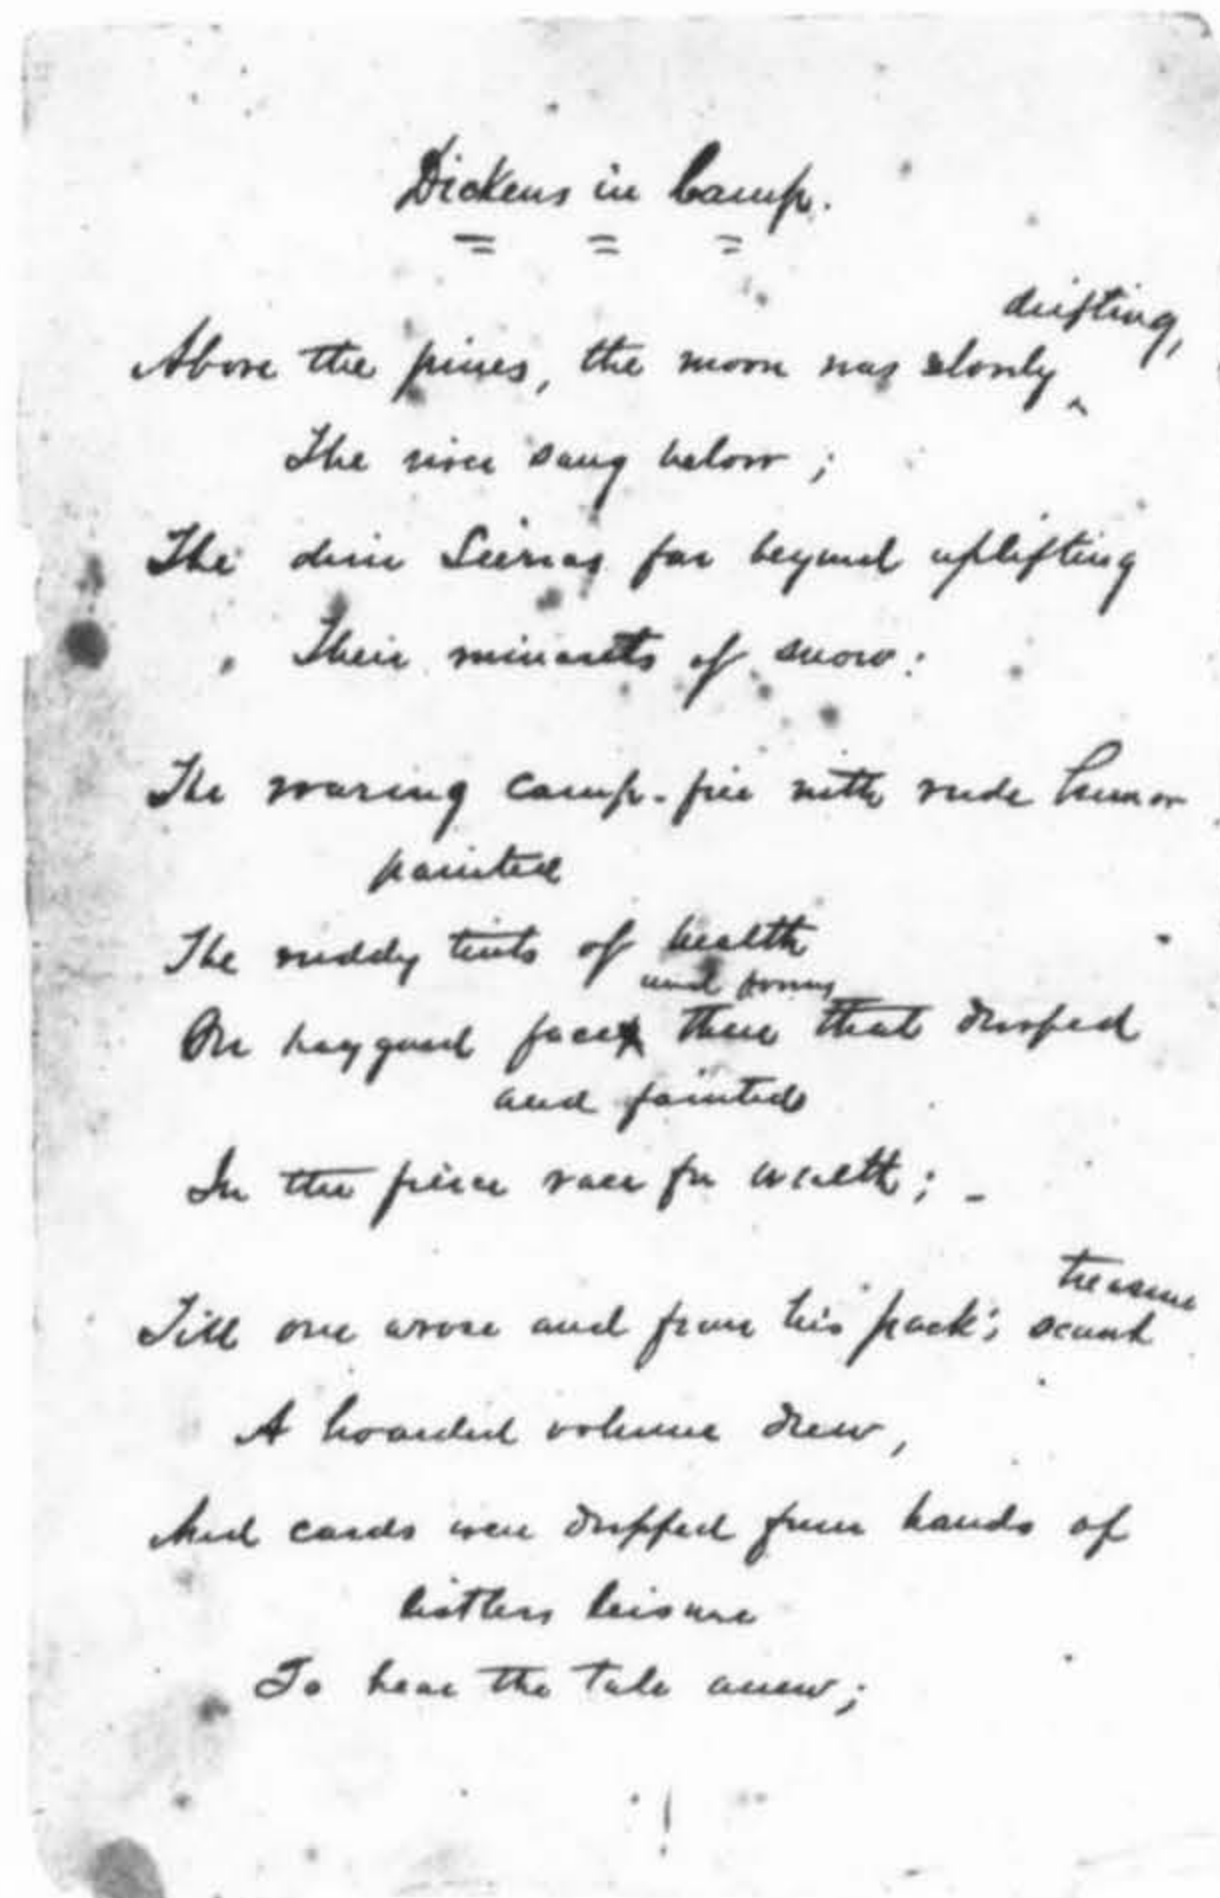 Dickens in Camp.
drifting,
Above the pines, the moon was slowly
The river sang below;
The dim Sierras far beyond uplifting
Their minarets of snow:
The roaring camp-fire with rude humor
painted
The ruddy tints of health
and forms
On haggard face there that drooped
and fainted
In the fierce race for wealth; -
treasure
Till one arose and from his pack's scant
A hoarded volume drew,
And cards were dropped from hands of
listless leisure
To hear the tale anew;